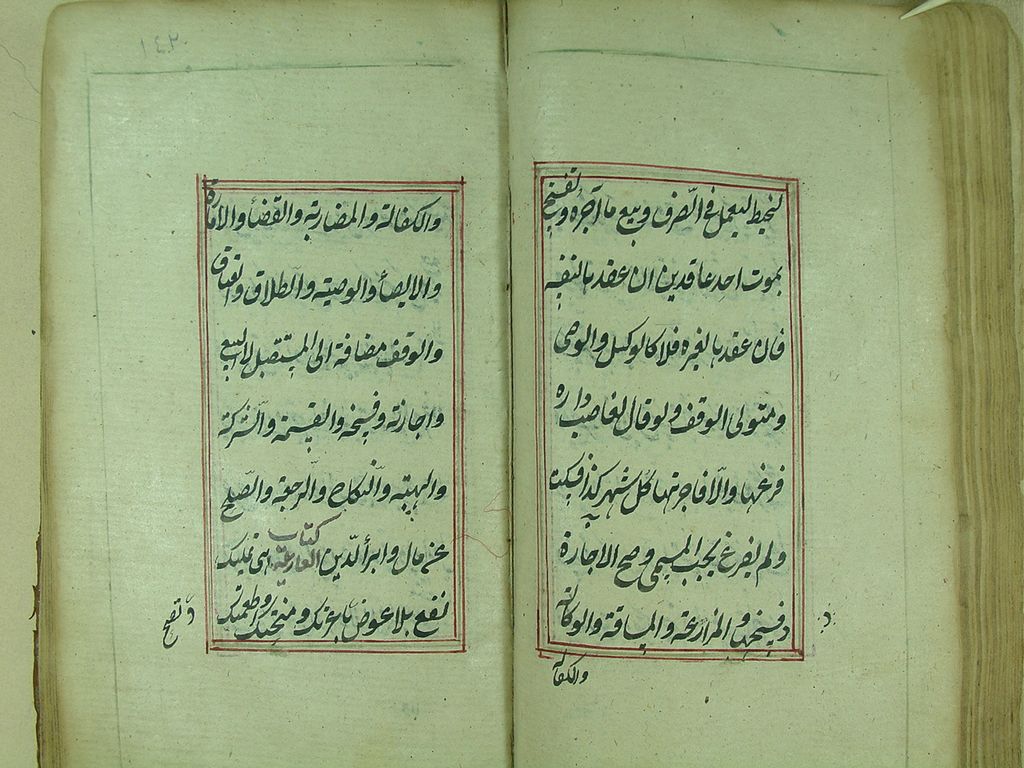 لنخيط ليعمل في الصرف وبيع ما آجره وتفسخ
بموت احد عاقدين ان عقد بالنفسه
فان عقد بالغيره فلا كالوكيل والوصى
ومتولى الوقف ولو قال لغاصب داره
فرغها والا فاجرتها كل شهر كذا فسكت
ولم يفرغ يجب المسمى وصح الاجارة
وفسخها والمزارعة والمساقة والوكالة
والكفالة
١٤٢
والكفالة والمضاربة والقضأ والامارة
والايصأ والوصية والطلاق والعتاق
والوقف مضافة الى المستقبل لا البيع
واجازته وفسخه والقسمة والشركة
والهبة والنكاح والرجعة والصلح
عن مال وابرأ الدين كتاب العارية هى تمليك
نفع بلا عوض باعرتك ومنحتك واطعمتك
و تصح